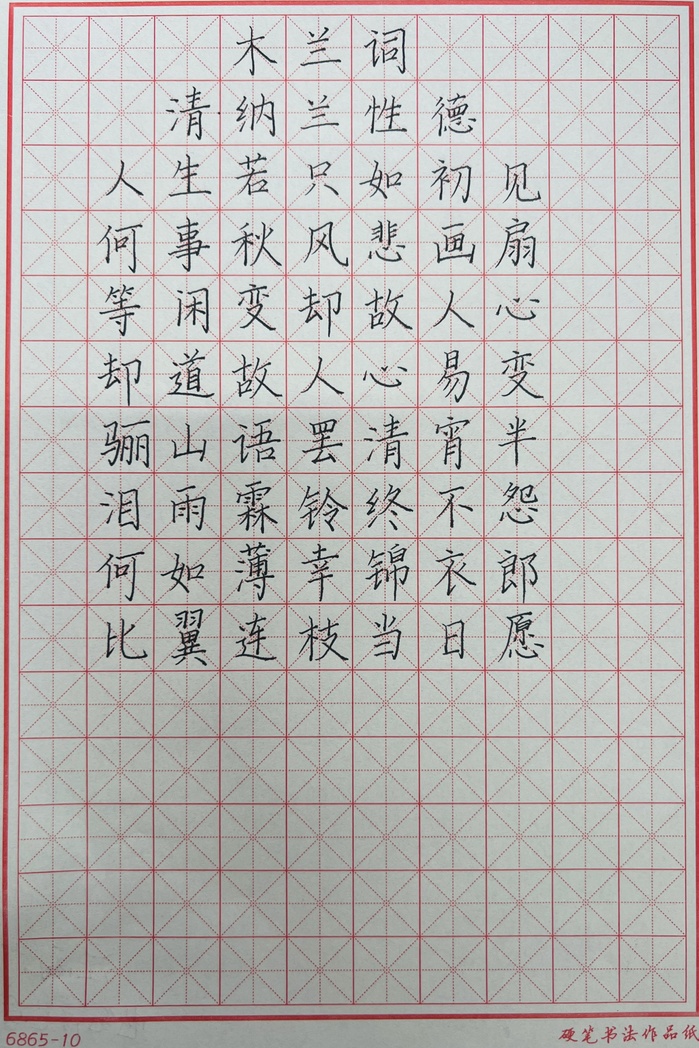 木兰词
清纳兰性德
人生若只如初见
何事秋风悲画扇
等闲变却故人心
却道故人心易变
骊山语罢清宵半
泪雨霖铃终不怨
何如薄幸锦衣郎
比翼连枝当日愿
6865-10
硬笔书法作品纸